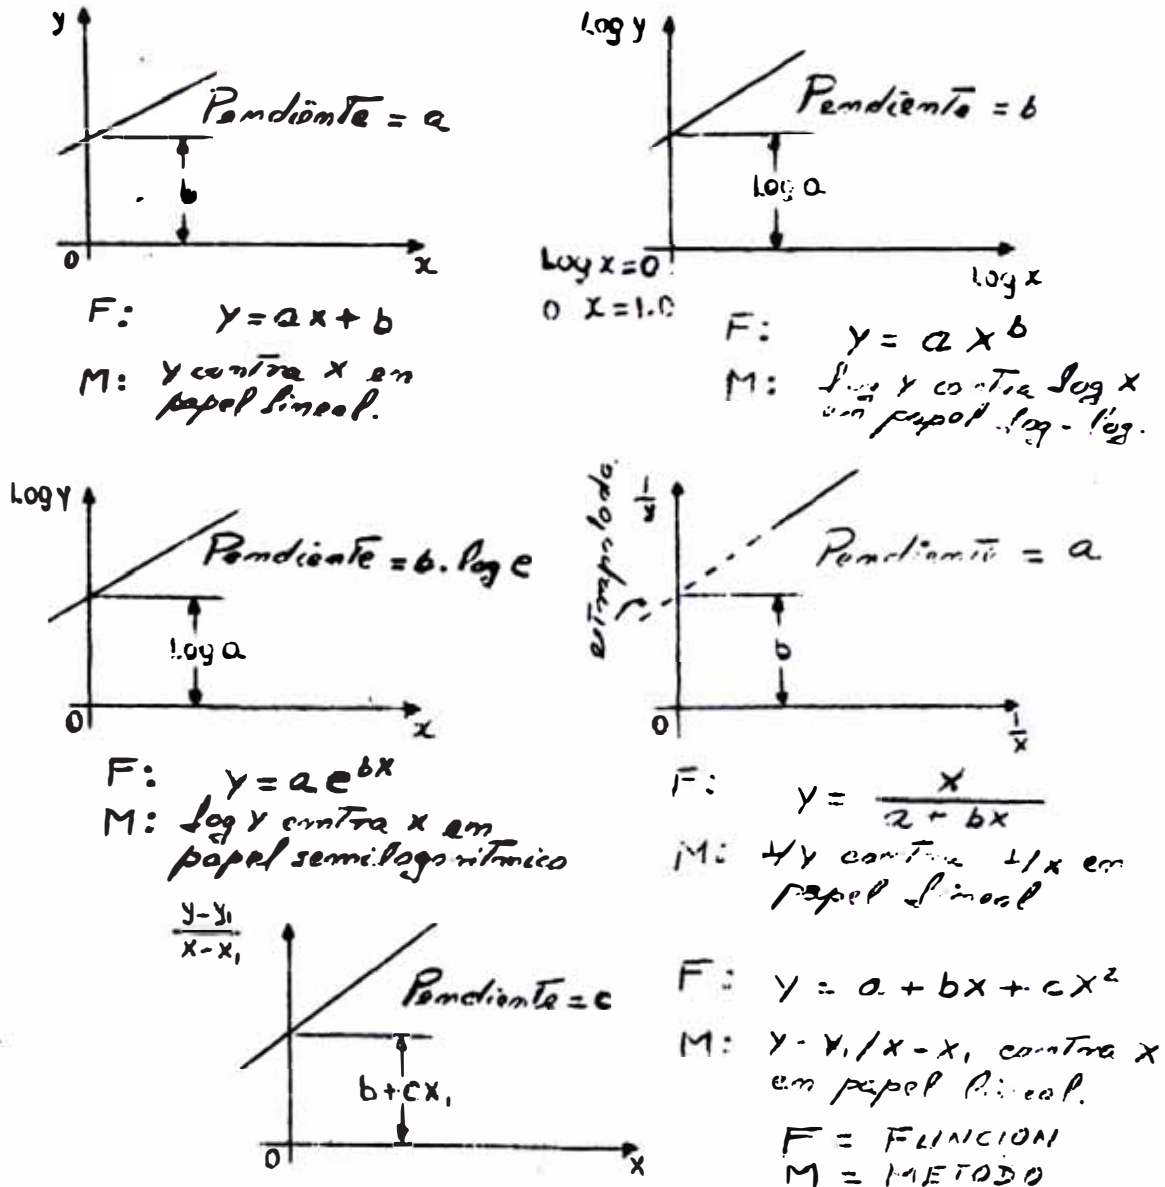 y
Pendiente = a
b
0
x
F: y = ax + b
M: y contra x en
papel lineal.
Log y
Pendiente = b
Log a
Log x = 0
o x = 1.0
Log x
F: y = a x^b
M: Log y contra log x
en papel log-log.
Log y
Pendiente = b. log e
Log a
0
x
F: y = a e^bx
M: log y contra x en
papel semilogaritmico
extrapolado
Pendiente = a
0
1/x
F: y = x / (a + bx)
M: 1/y contra 1/x en
papel lineal
y-y₁ / x-x₁
Pendiente = c
b+cx₁
0
x
F: y = a + bx + cx²
M: y-y₁/x-x₁ contra x
en papel lineal.
F = FUNCION
M = METODO